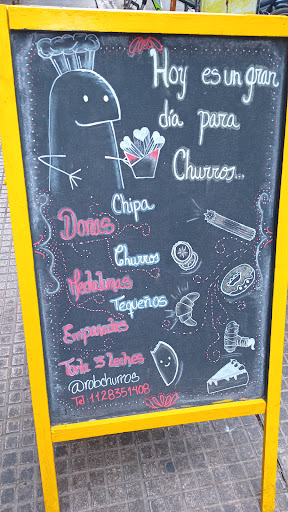 Hoy es un gran
día para
Churros...
Chipa
Donas
Churros
Medialunas
Tequeños
Empanadas
Torta 3 Leches
@robchurros
Tel 1128351408